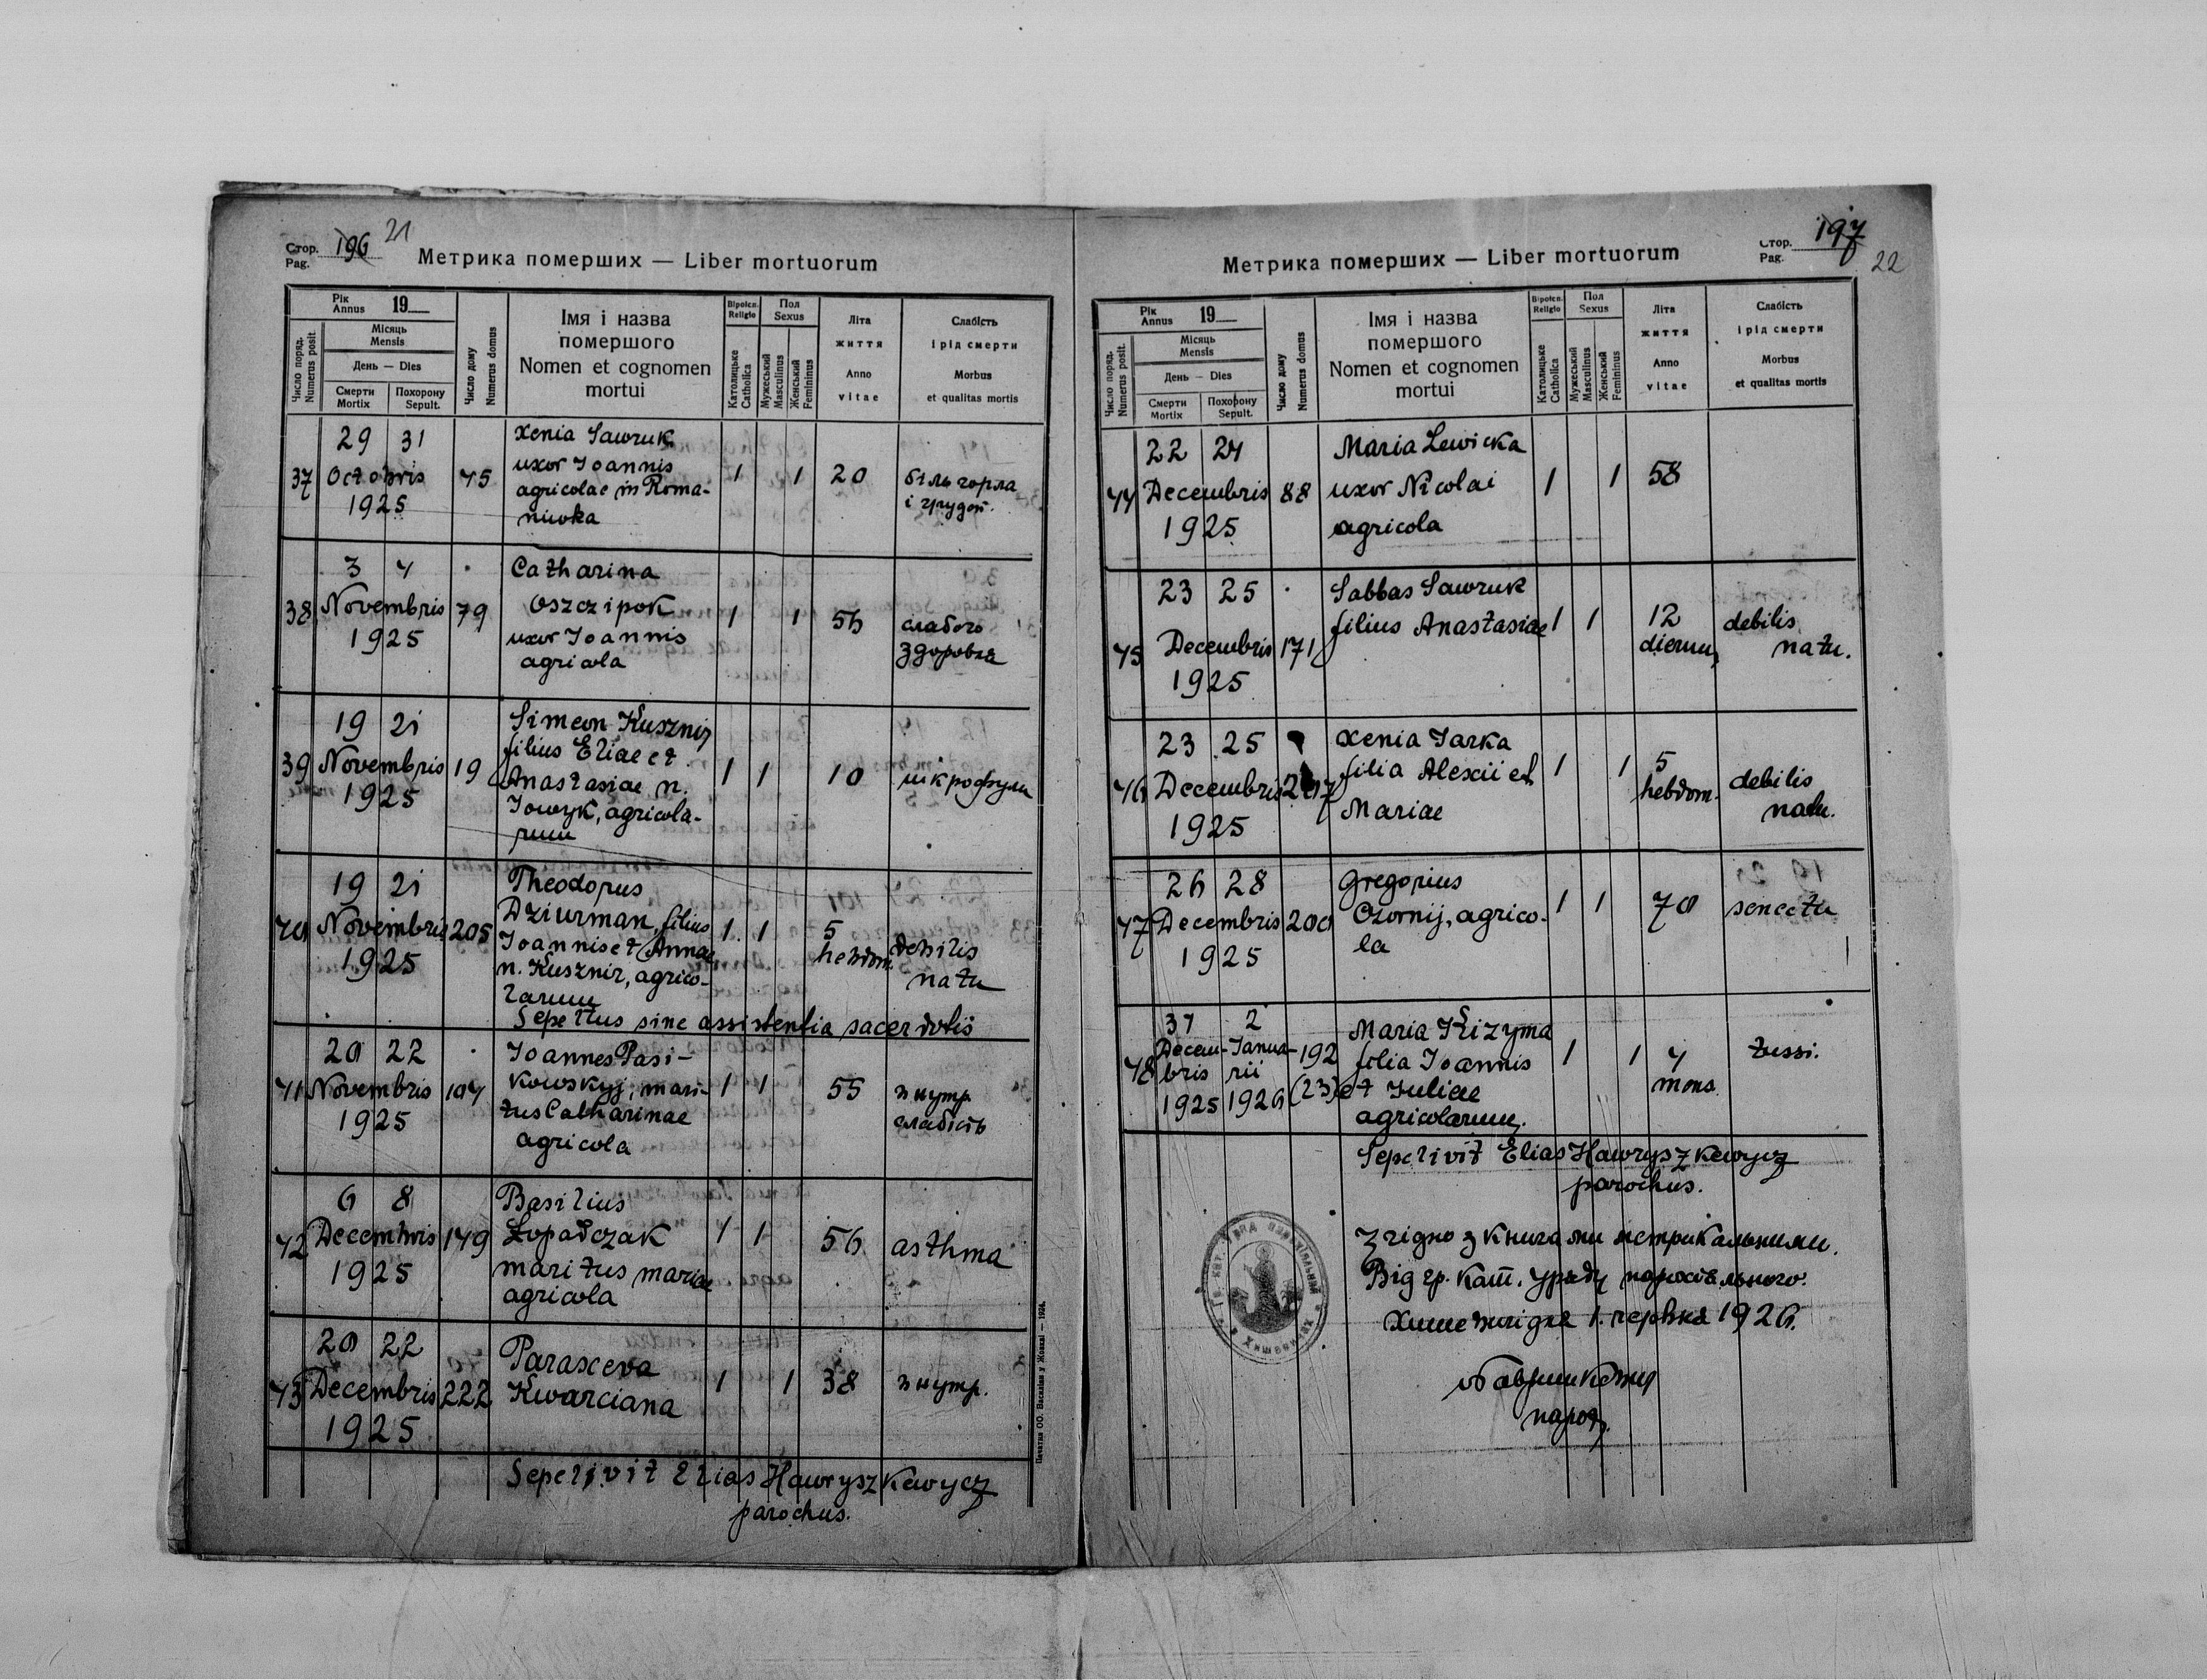 Стор. 196 21
Pag.
Метрика померших — Liber mortuorum
Рік Annus 19
Місяць Mensis
День — Dies
Смерти Mortix
Похорону Sepult.
Число поряд. Numerus posit.
Число дому Numerus domus
Імя і назва
померш​ого
Nomen et cognomen
mortui
Віроісп. Religio
Католицьке Catholica
Пол Sexus
Мужеський Masculinus
Женський Femininus
Літа
життя
Anno
vitae
Слабість
і рід смерти
Morbus
et qualitas mortis
29 31 Xenia Sawruk
37 Octobris 45 uxor Joannis 1 1 20 біль горла
1925 agricolae in Roma- і грудей.
niwka
3 4 Catharina
38 Novembris 79 Oszczipok 1 1 56 слабого
1925 uxor Joannis здоровля
agricola
19 21 Simeon Kusznir
39 Novembris 19 filius Eliae et 1 1 10 шкрофули
1925 Anastasiae n.
Jowyk, agricola-
rum
19 21 Theodorus
40 Novembris 205 Dziurman, filius 1 1 5
1925 Joannis et Annae hebdom. debilis
n. Kusznir, agrico- natu
larum
Sepultus sine assistentia sacerdotis
20 22 Joannes Pasi-
41 Novembris 104 kowskyj, mari- 1 1 55 внутр.
1925 tus Catharinae слабість
agricola
6 8 Basilius
42 Decembris 149 Łopadczak 1 1 56 asthma
1925 maritus Mariae
agricola
20 22 Parasceva
43 Decembris 222 Kwarciana 1 1 38 внутр.
1925
Sepelivit Elias Hawryszkewycz
parochus.
Печатня ОО. Василіян у Жовкві — 1924.
Метрика померших — Liber mortuorum
Стор. 197
Pag. 22
Рік Annus 19
Місяць Mensis
День — Dies
Смерти Mortix
Похорону Sepult.
Число поряд. Numerus posit.
Число дому Numerus domus
Імя і назва
помершого
Nomen et cognomen
mortui
Віроісп. Religio
Католицьке Catholica
Пол Sexus
Мужеський Masculinus
Женський Femininus
Літа
життя
Anno
vitae
Слабість
і рід смерти
Morbus
et qualitas mortis
22 24 Maria Lewicka
44 Decembris 88 uxor Nicolai 1 1 58
1925 agricola
23 25 Sabbas Sawruk
45 Decembris 171 filius Anastasiae 1 1 12 debilis
1925 dierum natu.
23 25 Xenia Jarka
46 Decembris filia Alexii et 1 1 5 debilis
1925 Mariae hebdom. natu.
26 28 Gregorius
47 Decembris 200 Czornij, agrico- 1 1 70 senectu
1925 la
31 2 Maria Kizyma
48 Decem- Janua- 192 filia Joannis 1 1 4 tussi.
bris rii (23) et Juliae mens.
1925 1926 agricolarum.
Sepelivit Elias Hawryszkewycz
parochus.
Згідно з книгами метрикальними.
Від гр. кат. уряду парохіяльного.
1. червня 1926.
парох.